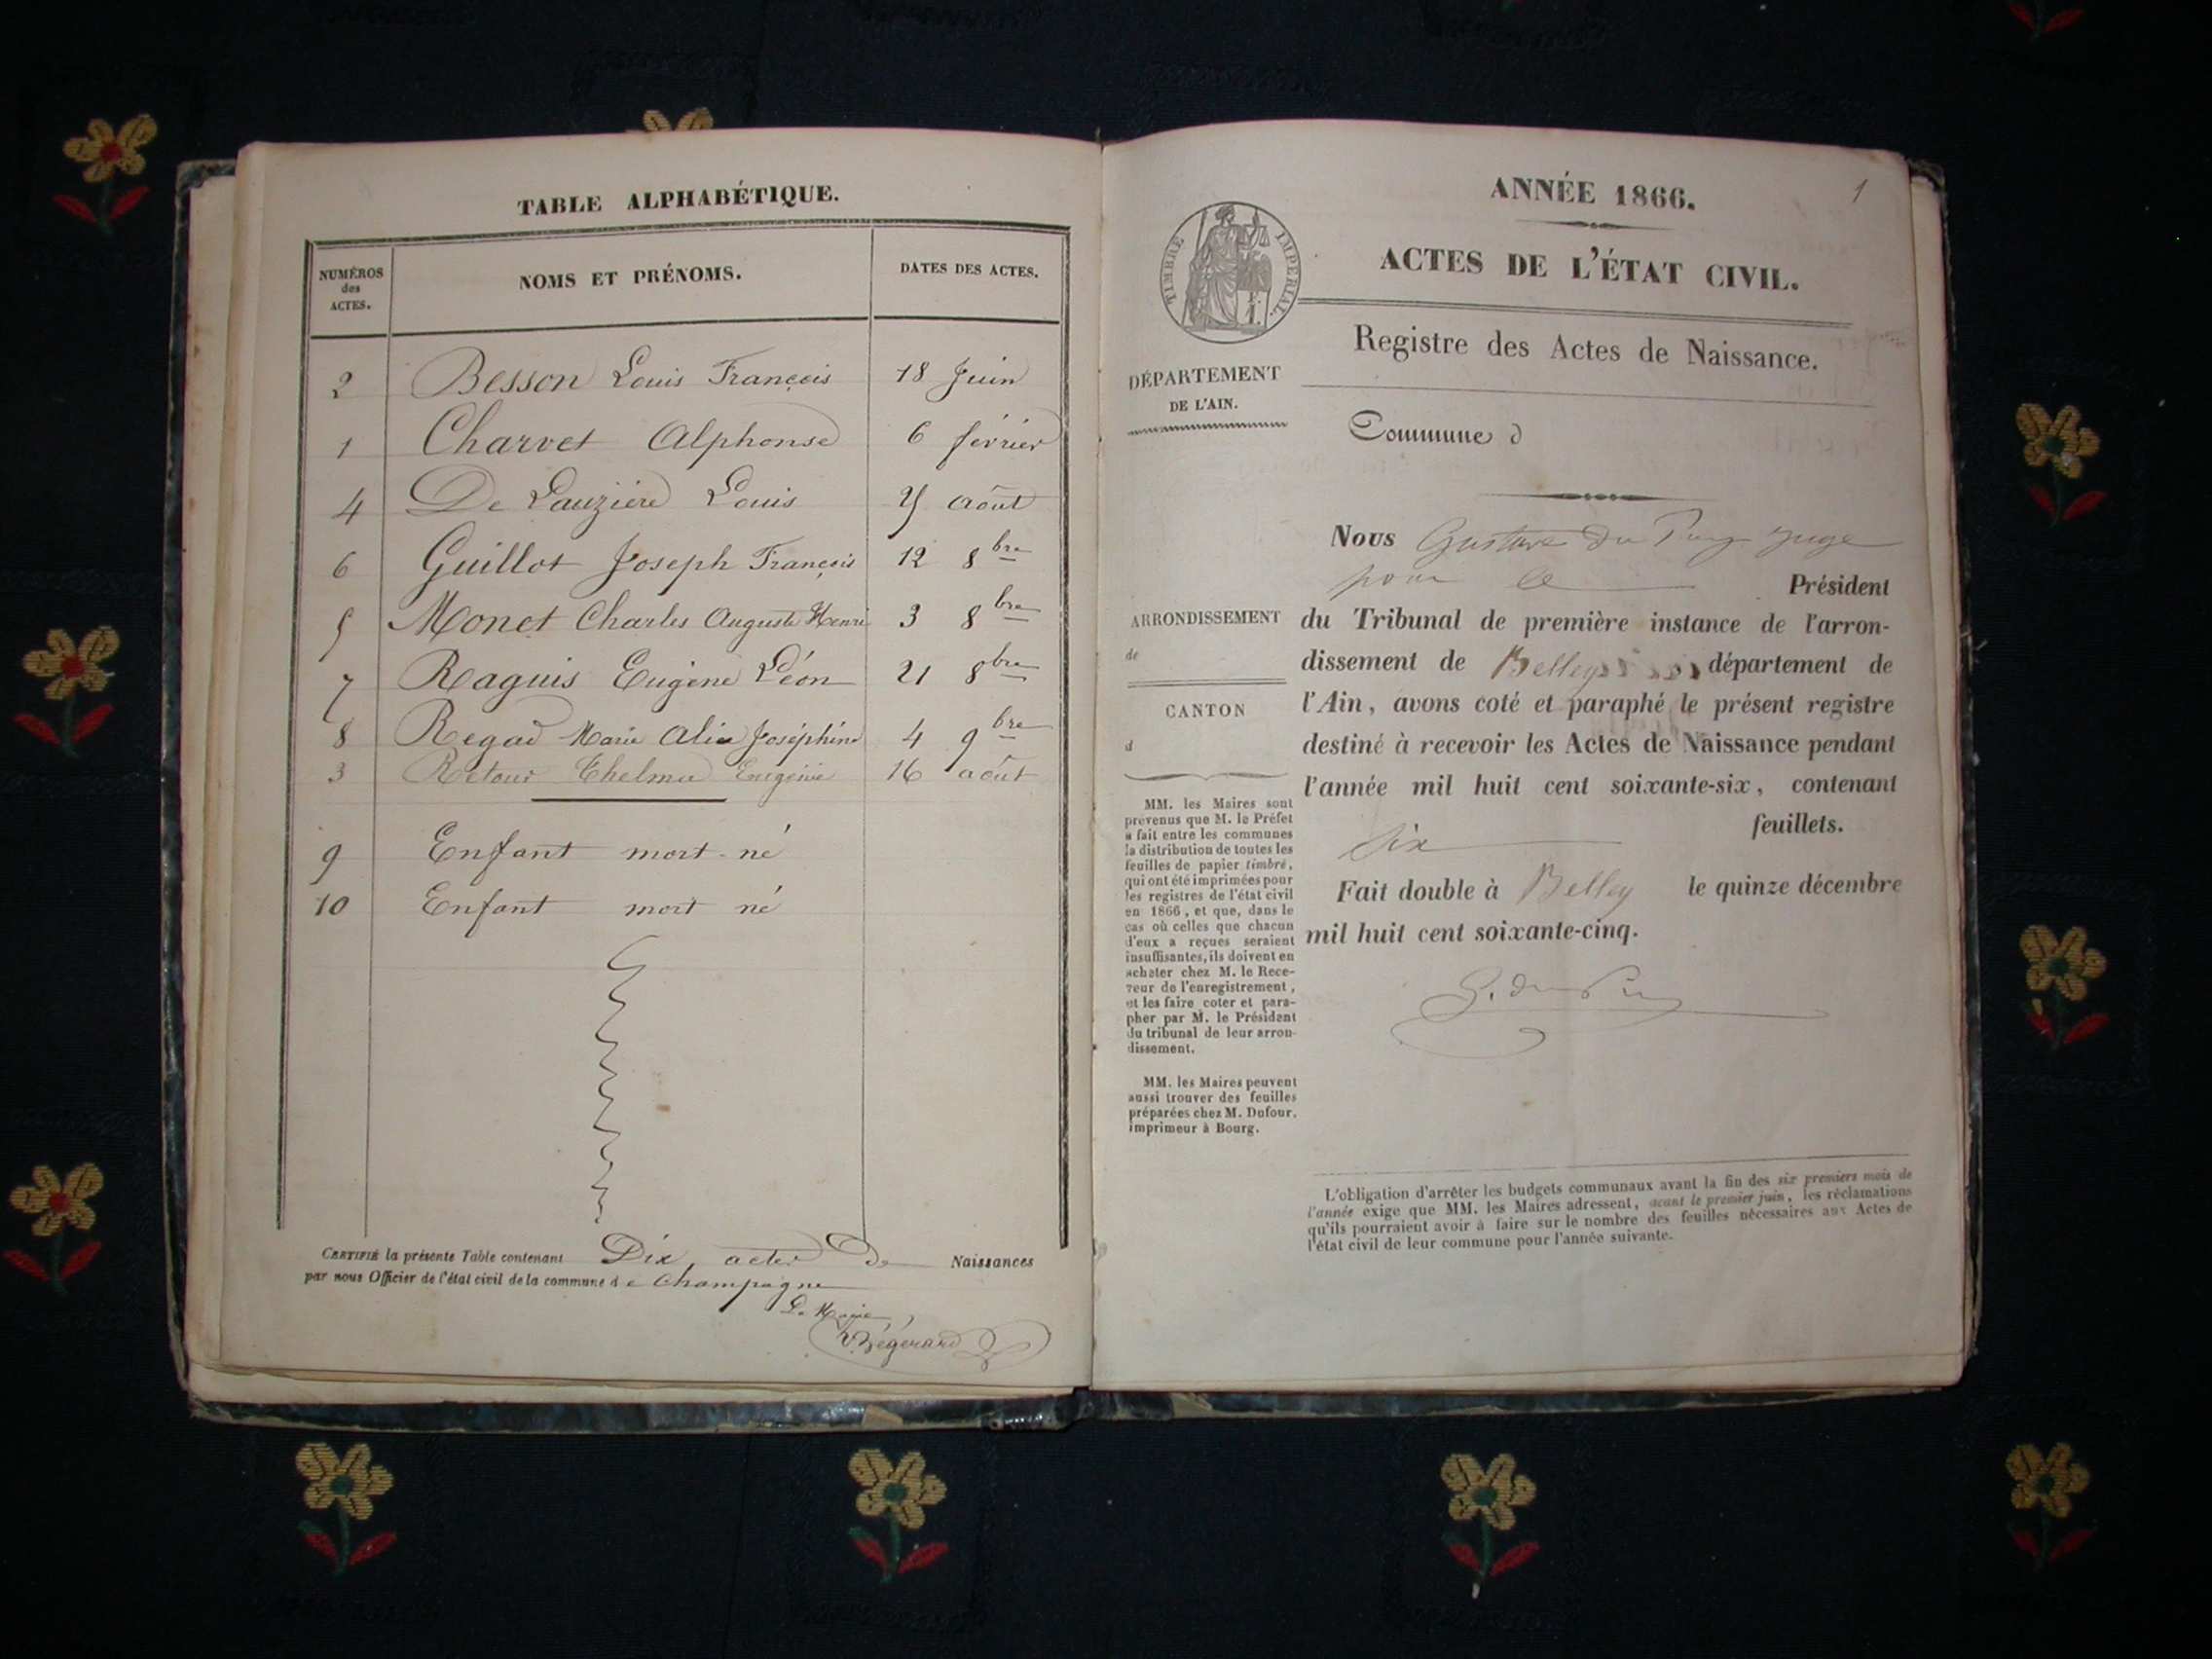 TABLE ALPHABÉTIQUE.
NUMÉROS
des
ACTES.
NOMS ET PRÉNOMS.
DATES DES ACTES.
2 Besson Louis François 18 Juin
1 Charvet Alphonse 6 février
4 De Lauzière Louis 25 août
6 Guillot Joseph François 12 8bre
5 Monet Charles Auguste Henri 3 8bre
7 Raguis Eugène Léon 21 8bre
8 Regad Marie Alice Joséphine 4 9bre
3 Retour Thelma Eugénie 16 août
9 Enfant mort-né
10 Enfant mort né
CERTIFIÉ la présente Table contenant Dix actes de Naissances
par nous Officier de l'état civil de la commune de Champagne
Le Maire
1
ANNÉE 1866.
ACTES DE L'ÉTAT CIVIL.
TIMBRE IMPÉRIAL.
Registre des Actes de Naissance.
DÉPARTEMENT
DE L'AIN.
Commune d
Nous Gustave du Puy juge
pour le Président
du Tribunal de première instance de l'arron-
dissement de Belley département de
l'Ain, avons coté et paraphé le présent registre
destiné à recevoir les Actes de Naissance pendant
l'année mil huit cent soixante-six, contenant
six feuillets.
Fait double à Belley le quinze décembre
mil huit cent soixante-cinq.
G. du Puy
ARRONDISSEMENT
de
CANTON
d
MM. les Maires sont
prévenus que M. le Préfet
a fait entre les communes
la distribution de toutes les
feuilles de papier timbré,
qui ont été imprimées pour
les registres de l'état civil
en 1866, et que, dans le
cas où celles que chacun
d'eux a reçues seraient
insuffisantes, ils doivent en
acheter chez M. le Rece-
veur de l'enregistrement,
et les faire coter et para-
pher par M. le Président
du tribunal de leur arron-
dissement.
MM. les Maires peuvent
aussi trouver des feuilles
préparées chez M. Dufour,
imprimeur à Bourg.
L'obligation d'arrêter les budgets communaux avant la fin des six premiers mois de
l'année exige que MM. les Maires adressent, avant le premier juin, les réclamations
qu'ils pourraient avoir à faire sur le nombre des feuilles nécessaires aux Actes de
l'état civil de leur commune pour l'année suivante.